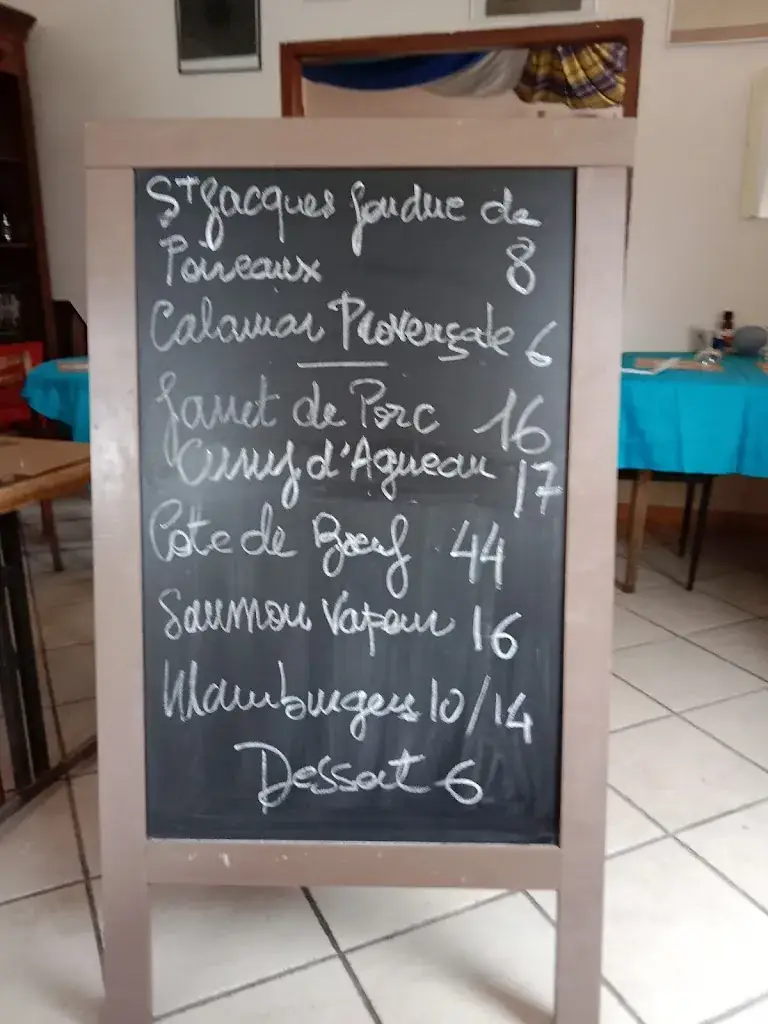 St Jacques fondue de
Poireaux 8
Calamar Provençale 6
Jarret de Porc 16
d'Agneau 17
Côte de Bœuf 44
Saumon Vapeur 16
Hamburgers 10/14
Dessert 6